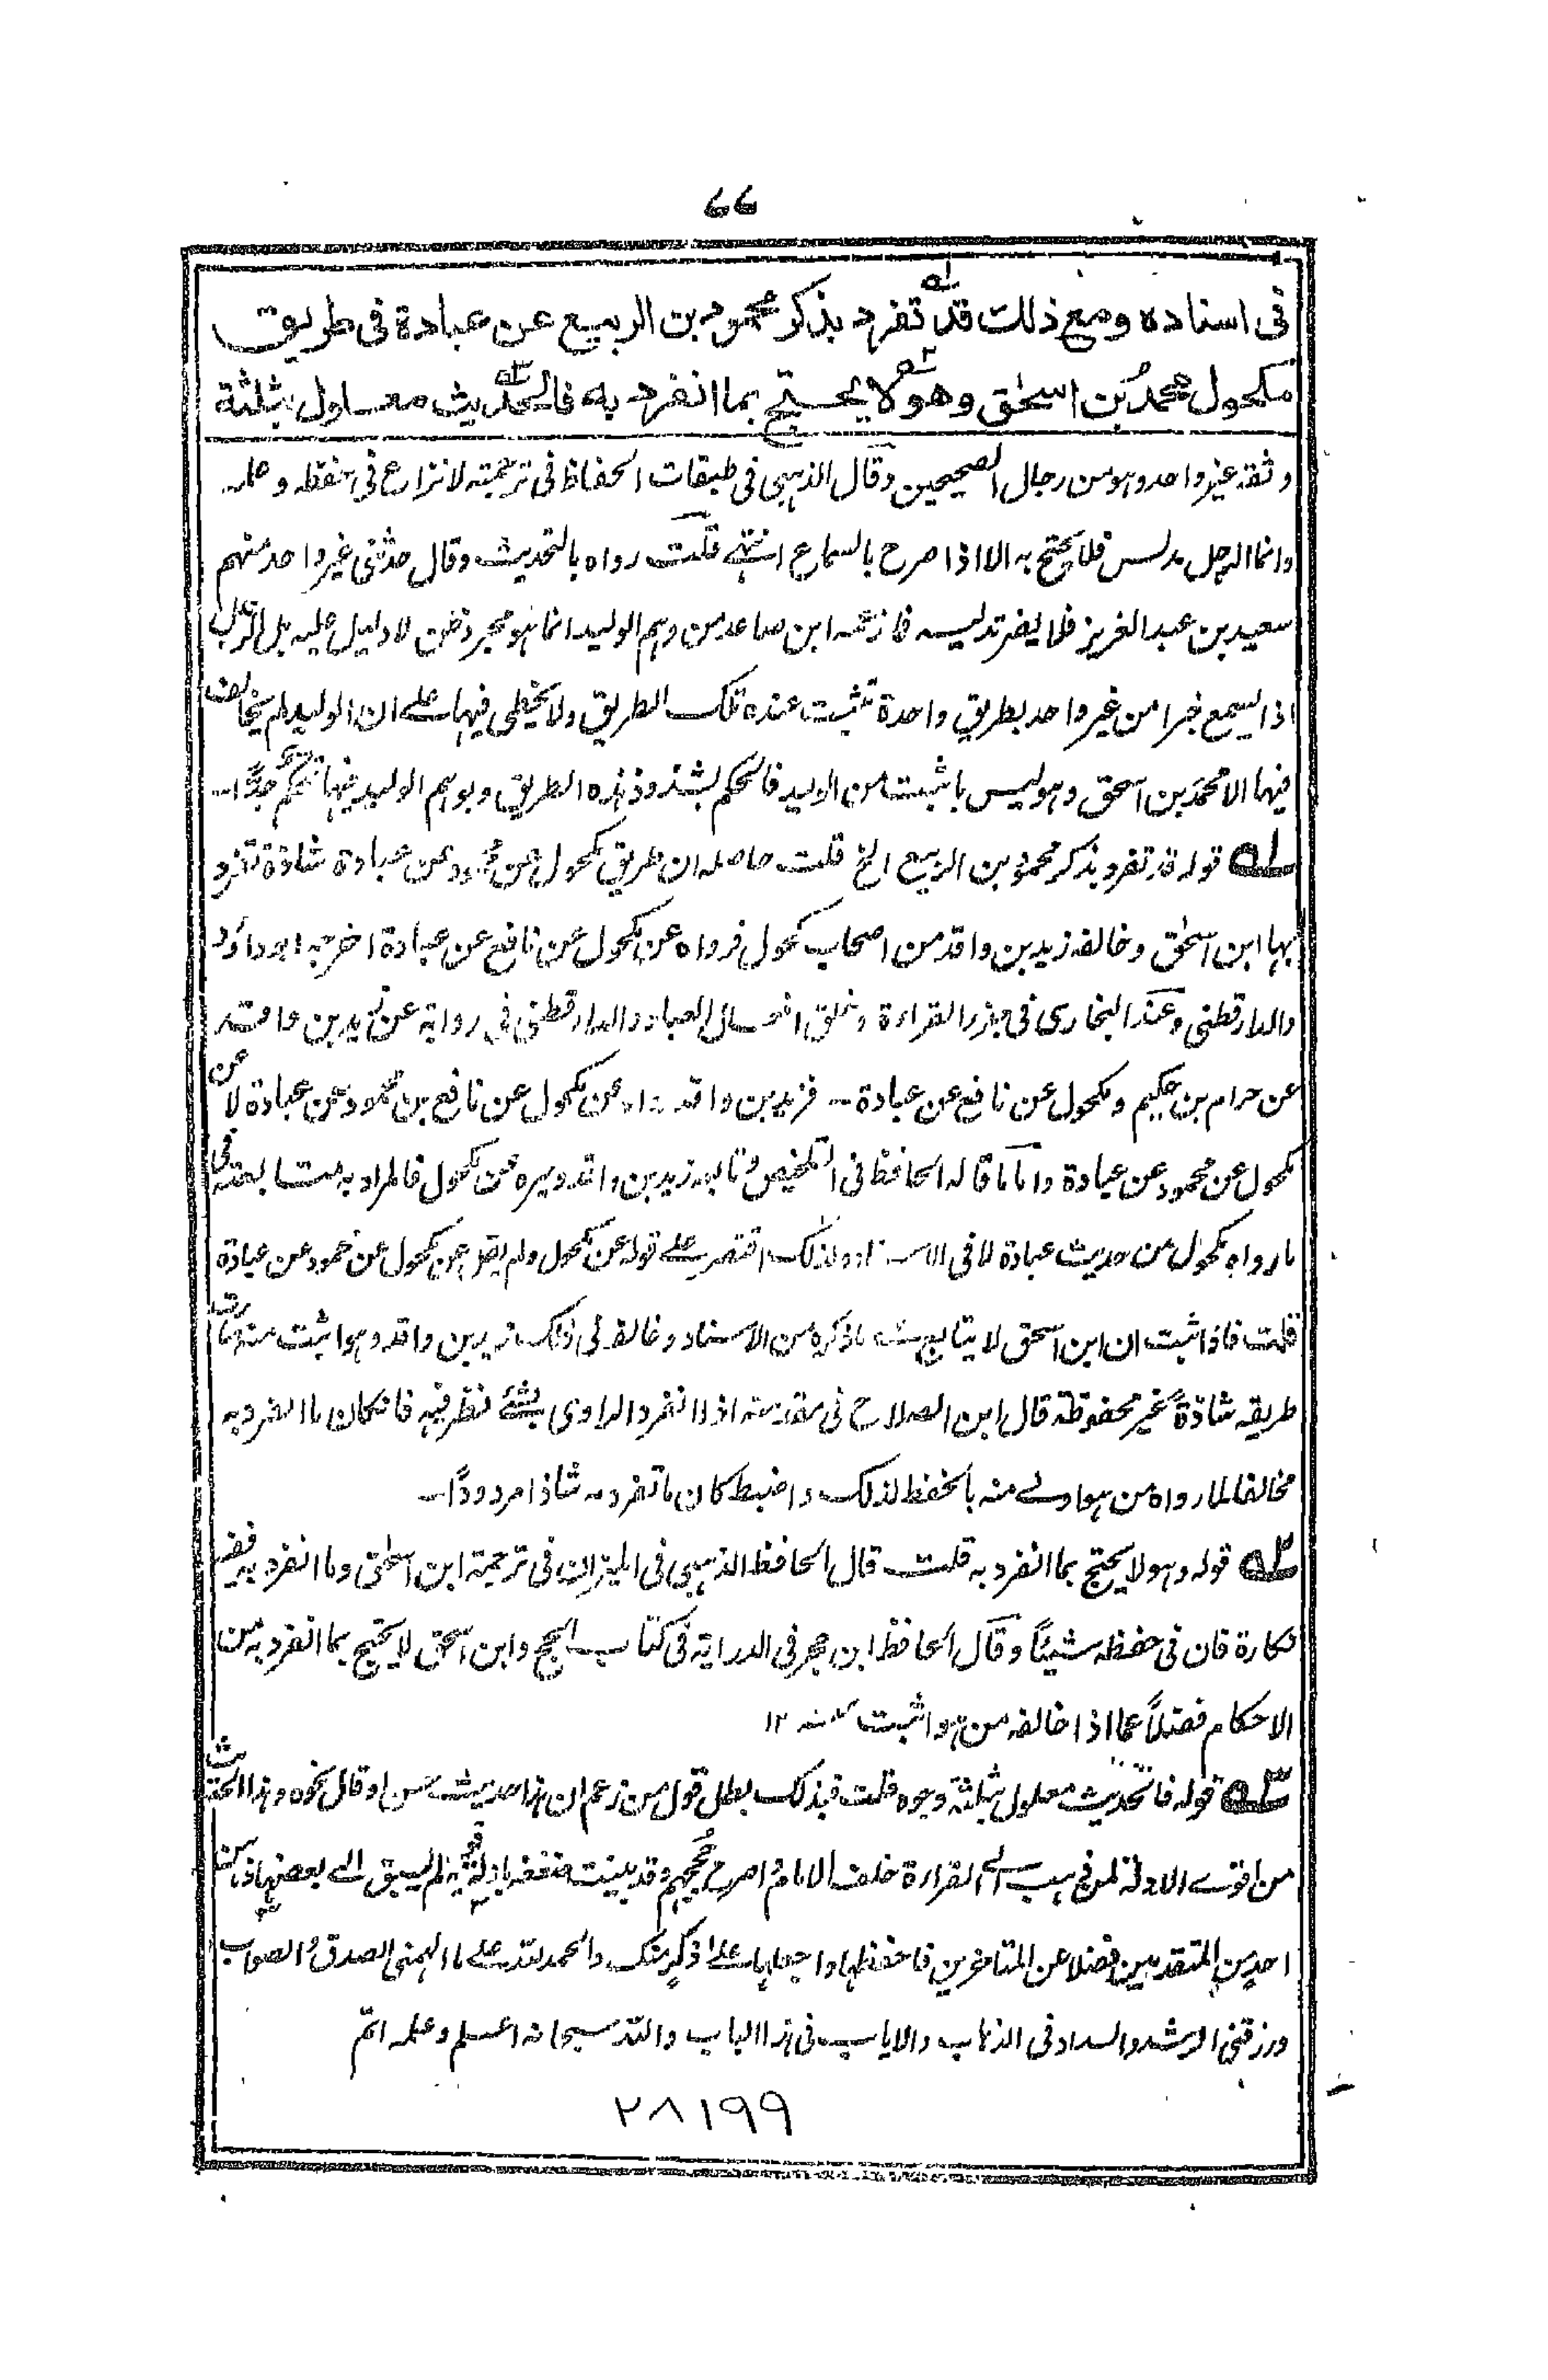 ٧٧
فى اسناده ومع ذلك قد تفرد بذكر محمود بن الربيع عن عبادة فى طريق
مكحول محمد بن اسحٰق وهو لا يحتج بما انفرد به فالحديث معلول بثلثة
وثقه غير واحد وهو من رجال الصحيحين وقال الذهبى فى طبقات الحفاظ فى ترجمته لا نزاع فى حفظه وعلمه
وانما الرجل مدلس فلا يحتج به الا اذا صرح بالسماع انتهى قلت رواه بالتحديث وقال حدثنى غير واحد منهم
سعيد بن عبد العزيز فلا يضر تدليسه فما زعمه ابن صاعد من وهم الوليد انما هو مجرد ظن لا دليل عليه بل
اذا سمع خبرا من غير واحد بطريق واحدة تثبت عنده تلك الطريق ولا يخطى فيها على ان الوليد لم يخالف
فيها الا محمد بن اسحق وهو ليس باثبت من الوليد فالحكم بشذوذ هذه الطريق وبوهم الوليد فيها تحكم جدًا
ا؎ قوله قد تفرد بذكر محمود بن الربيع الخ قلت حاصله ان طريق مكحول عن محمود عن عبادة شاذة تفرد
بها ابن اسحٰق وخالفه زيد بن واقد من اصحاب مكحول فرواه عن مكحول عن نافع عن عبادة اخرجه ابو داؤد
والدارقطنى وعند البخارى فى جزء القراءة وخلق افعال العباد والدارقطنى فى رواية عن زيد بن واقد
عن حرام بن حكيم ومكحول عن نافع عن عبادة – فزيد بن واقد رواه عن مكحول عن نافع بن محمود عن عبادة لا عن
مكحول عن محمود عن عبادة واما ما قاله الحافظ فى التلخيص وتابعه زيد بن واقد وغيره عن مكحول فالمراد به متابعته فى
ما رواه مكحول من حديث عبادة لا فى الاسناد ولذلك اقتصر على قوله عن مكحول ولم يقل عن مكحول عن محمود عن عبادة
قلت فاذا ثبت ان ابن اسحق لا يتابع بشئ ما ذكره من الاسناد وخالفه فى ذلك زيد بن واقد وهو اثبت منه صارت
طريقه شاذة غير محفوظة قال ابن الصلاح فى مقدمته اذا انفرد الراوى بشئ نظر فيه فان كان ما انفرد به
مخالفا لما رواه من هو اولى منه بالحفظ لذلك واضبط كان ما تفرد به شاذا مردودًا –
٢؎ قوله وهو لا يحتج بما انفرد به قلت قال الحافظ الذهبى فى الميزان فى ترجمة ابن اسحٰق وما انفرد به ففيه
نكارة فان فى حفظه شيئًا وقال الحافظ ابن حجر فى الدراية فى كتاب الحج وابن اسحق لا يحتج بما انفرد به من
الاحكام فضلاً عما اذا خالفه من هو اثبت منه ١٢
٣؎ قوله فالحديث معلول بثلثة وجوه قلت فبذلك بطل قول من زعم ان هذا حديث حسن او قال نحوه وهذا الحديث
من اقوى الادلة لمن ذهب الى القراءة خلف الامام اصرح حججهم وقد بينت ضعفه بادلة لم يسبق الى بعضها
احد من المتقدمين فضلا عن المتاخرين فاحفظها واجعلها على ذكر منك والحمد لله على ما الهمنى الصدق والصواب
ورزقنى الرشد والسداد فى الذهاب والاياب فى هذا الباب والله سبحانه اعلم وعلمه اتم
٢٨١٩٩